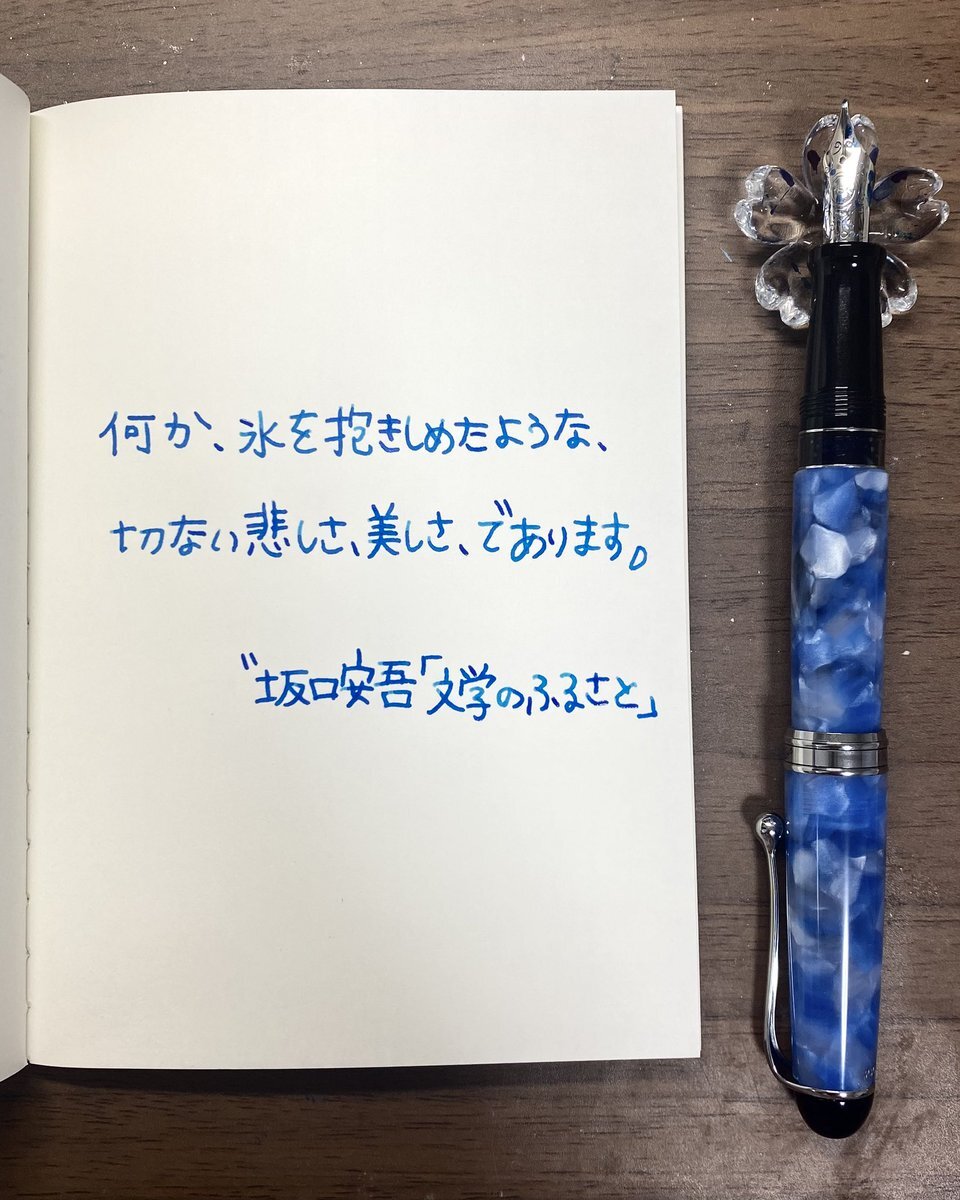 何か、氷を抱きしめたような、
切ない悲しさ、美しさ、であります。
〃坂口安吾「文学のふるさと」